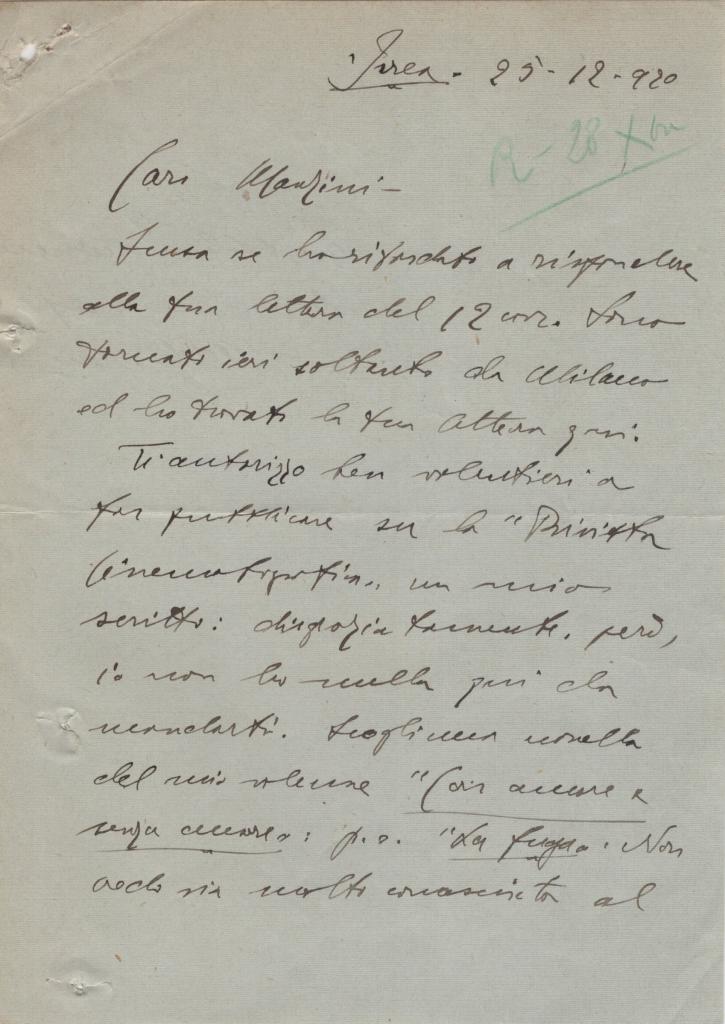 Ivrea. 25-12-920
R - 28 Xbre
Caro Manzini -
Scusa se ho ritardato a rispondere
alla tua lettera del 12 corr. Sono
tornato ieri soltanto da Milano
ed ho trovato la tua lettera qui.
Ti autorizzo ben volentieri a
far pubblicare su la "Rivista
Cinematografica" un mio
scritto: disgraziatamente, però,
io non ho nulla qui da
mandarti. Scegli una novella
del mio volume "Con amore e
senza amore": p.e. "La fuga". Non
credo sia molto conosciuta al